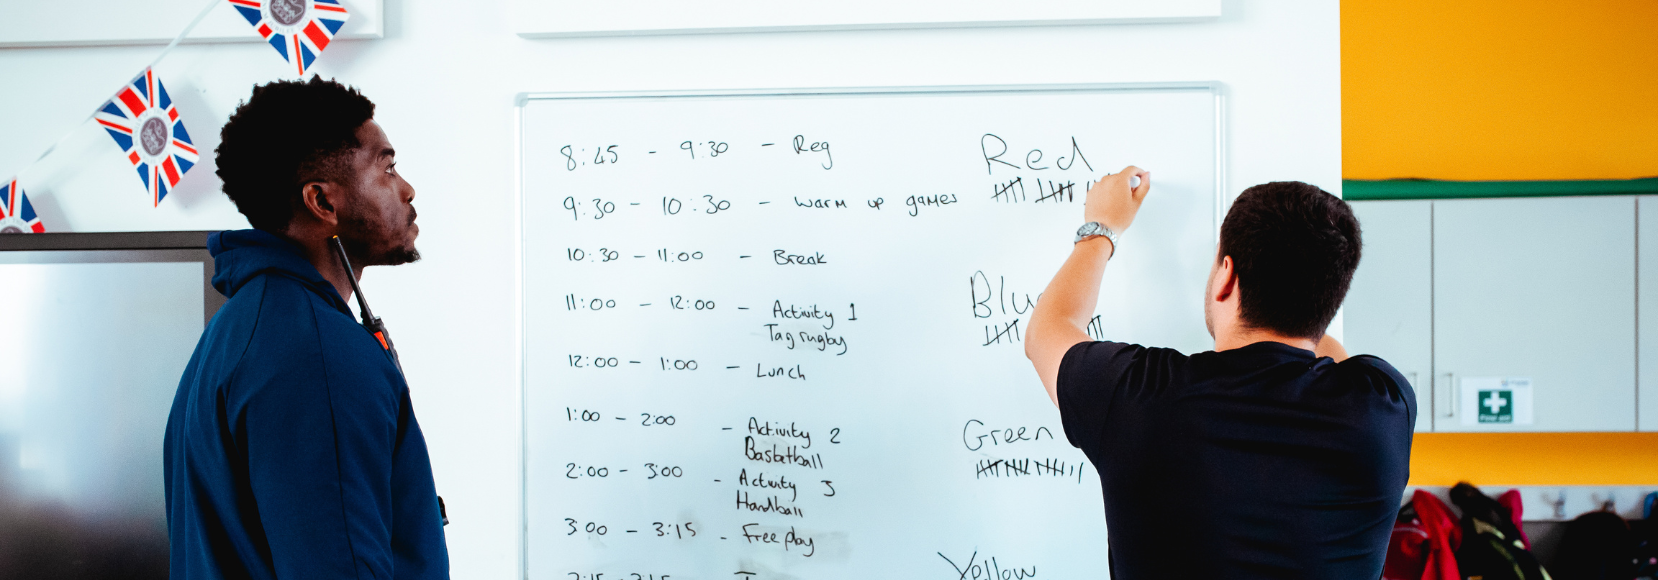 8:45 - 9:30 - Reg
9:30 - 10:30 - warm up games
10:30 - 11:00 - Break
11:00 - 12:00 - Activity 1
Tag rugby
12:00 - 1:00 - Lunch
1:00 - 2:00 - Activity 2
Basketball
2:00 - 3:00 - Activity 3
Handball
3:00 - 3:15 - Free play
Red
Blu
Green
Yellow